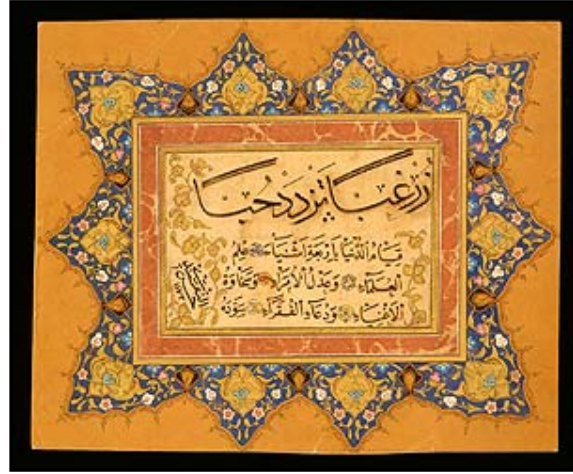 زُرْ غِبًّا تَزْدَدْ حُبًّا
قيام الدُّنْيَا بِأَرْبَعَةِ اَشْيَاءَ عِلْمُ
الْعُلَمَاءِ وَعَدْلُ الْأُمَرَاءِ وَسَخَاوَةُ
الْأَغْنِيَاءِ وَدُعَاءُ الْفُقَرَاءِ